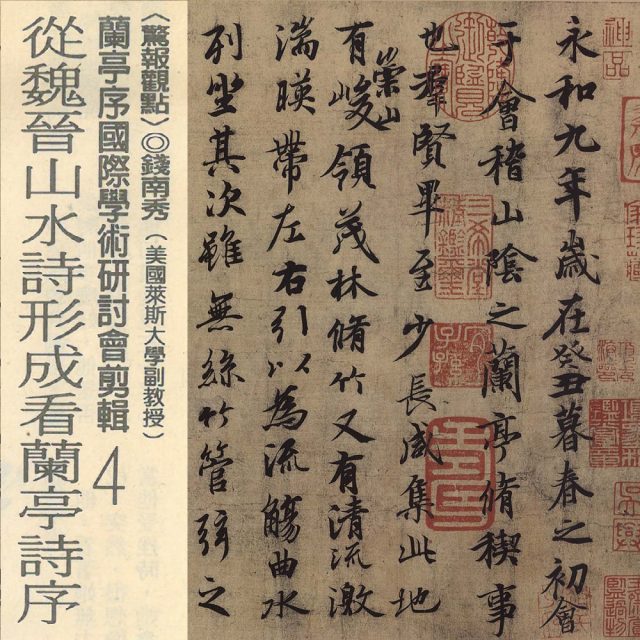 神品
永和九年歲在癸丑暮春之初會
于會稽山陰之蘭亭脩稧事
也羣賢畢至少長咸集此地
有崇山峻領茂林脩竹又有清流激
湍暎帶左右引以為流觴曲水
列坐其次雖無絲竹管弦之
〈驚報觀點〉◎錢南秀（美國萊斯大學副教授）
蘭亭序國際學術研討會剪輯 4
從魏晉山水詩形成看蘭亭詩序